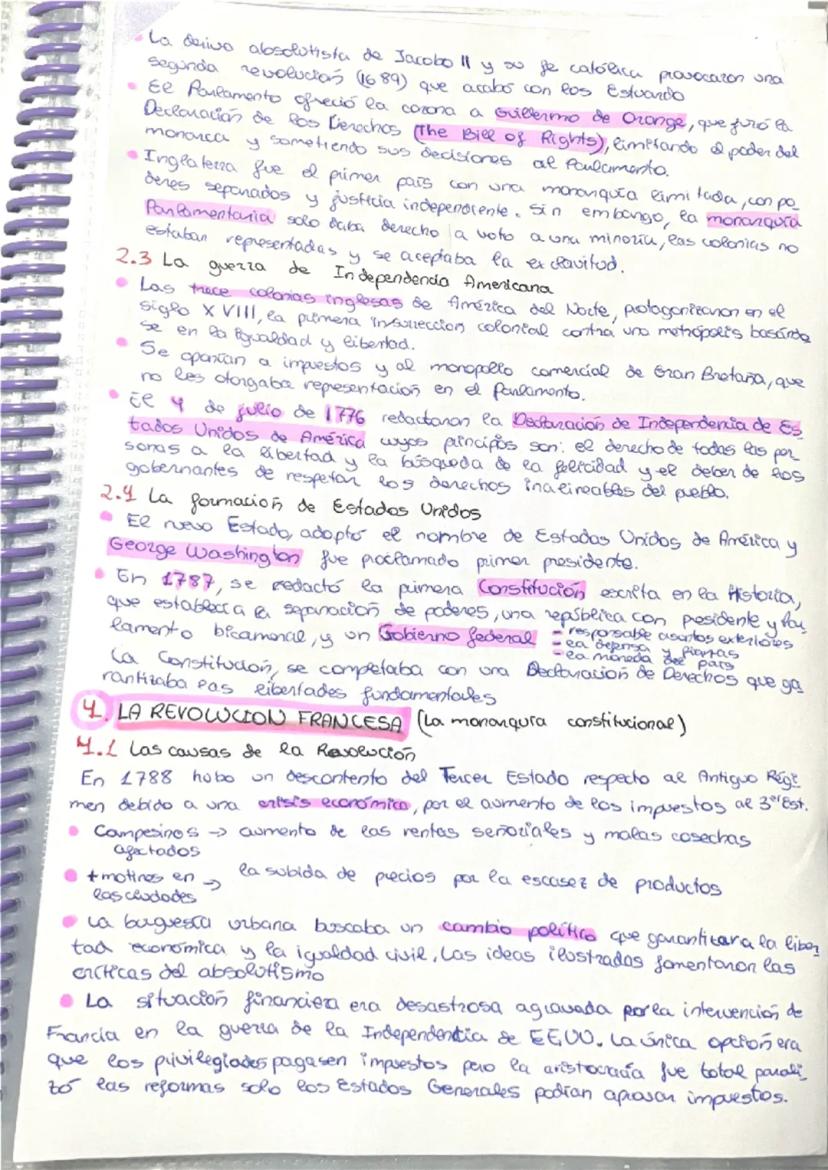 • La deriva absolutista de Jacobo II y su fe católica provocaron una
segunda revolución (1689) que acabó con los Estuardo
• El Parlamento ofreció la corona a Guillermo de Orange, que juró la
Declaración de los Derechos (The Bill of Rights), limitando el poder del
monarca y sometiendo sus decisiones al Parlamento.
• Inglaterra fue el primer país con una monarquía limitada, con po
deres separados y justicia independiente. Sin embargo, la monarquía
Parlamentaria solo daba derecho a voto a una minoría, las colonias no
estaban representadas y se aceptaba la esclavitud.
2.3 La guerra de Independencia Americana
• Las trece colonias inglesas de América del Norte, protagonizaron en el
siglo XVIII, la primera insurreccion colonial contra una metrópolis basándo
se en la igualdad y libertad.
• Se oponían a impuestos y al monopolio comercial de Gran Bretaña, que
no les otorgaba representación en el Parlamento.
• El 4 de julio de 1776 redactaron la Declaración de Independencia de Es
tados Unidos de América cuyos principios son: el derecho de todas las per
sonas a la libertad y la búsqueda de la felicidad y el deber de los
gobernantes de respetar los derechos inalineables del pueblo.
2.4 La formación de Estados Unidos
• El nuevo Estado, adoptó el nombre de Estados Unidos de América y
George Washington fue proclamado primer presidente.
• En 1787, se redactó la primera Constitución escrita en la Historia,
que establecía la separación de poderes, una república con presidente y Par
lamento bicameral, y un Gobierno federal
- responsable asuntos exteriores
- la defensa y finanzas
- la moneda del país
La Constitución, se completaba con una Declaración de Derechos que ga
rantizaba las libertades fundamentales
4. LA REVOLUCION FRANCESA (La monarquía constitucional)
4.1 Las causas de la Revolución
En 1788 hubo un descontento del Tercer Estado respecto al Antiguo Régi
men debido a una crisis económica, por el aumento de los impuestos al 3er Est.
• Campesinos → aumento de las rentas señoriales y malas cosechas
afectados
• + motines en → la subida de precios por la escasez de productos
las ciudades
• La burguesía urbana buscaba un cambio político que garantizara la liber
tad económica y la igualdad civil, Las ideas ilustradas fomentaron las
críticas del absolutismo
• La situación financiera era desastrosa agravada por la intervención de
Francia en la guerra de la Independencia de EEUU. La única opción era
que los privilegiados pagasen impuestos pero la aristocracia fue total parali
zó las reformas solo los Estados Generales podían aprovar impuestos.